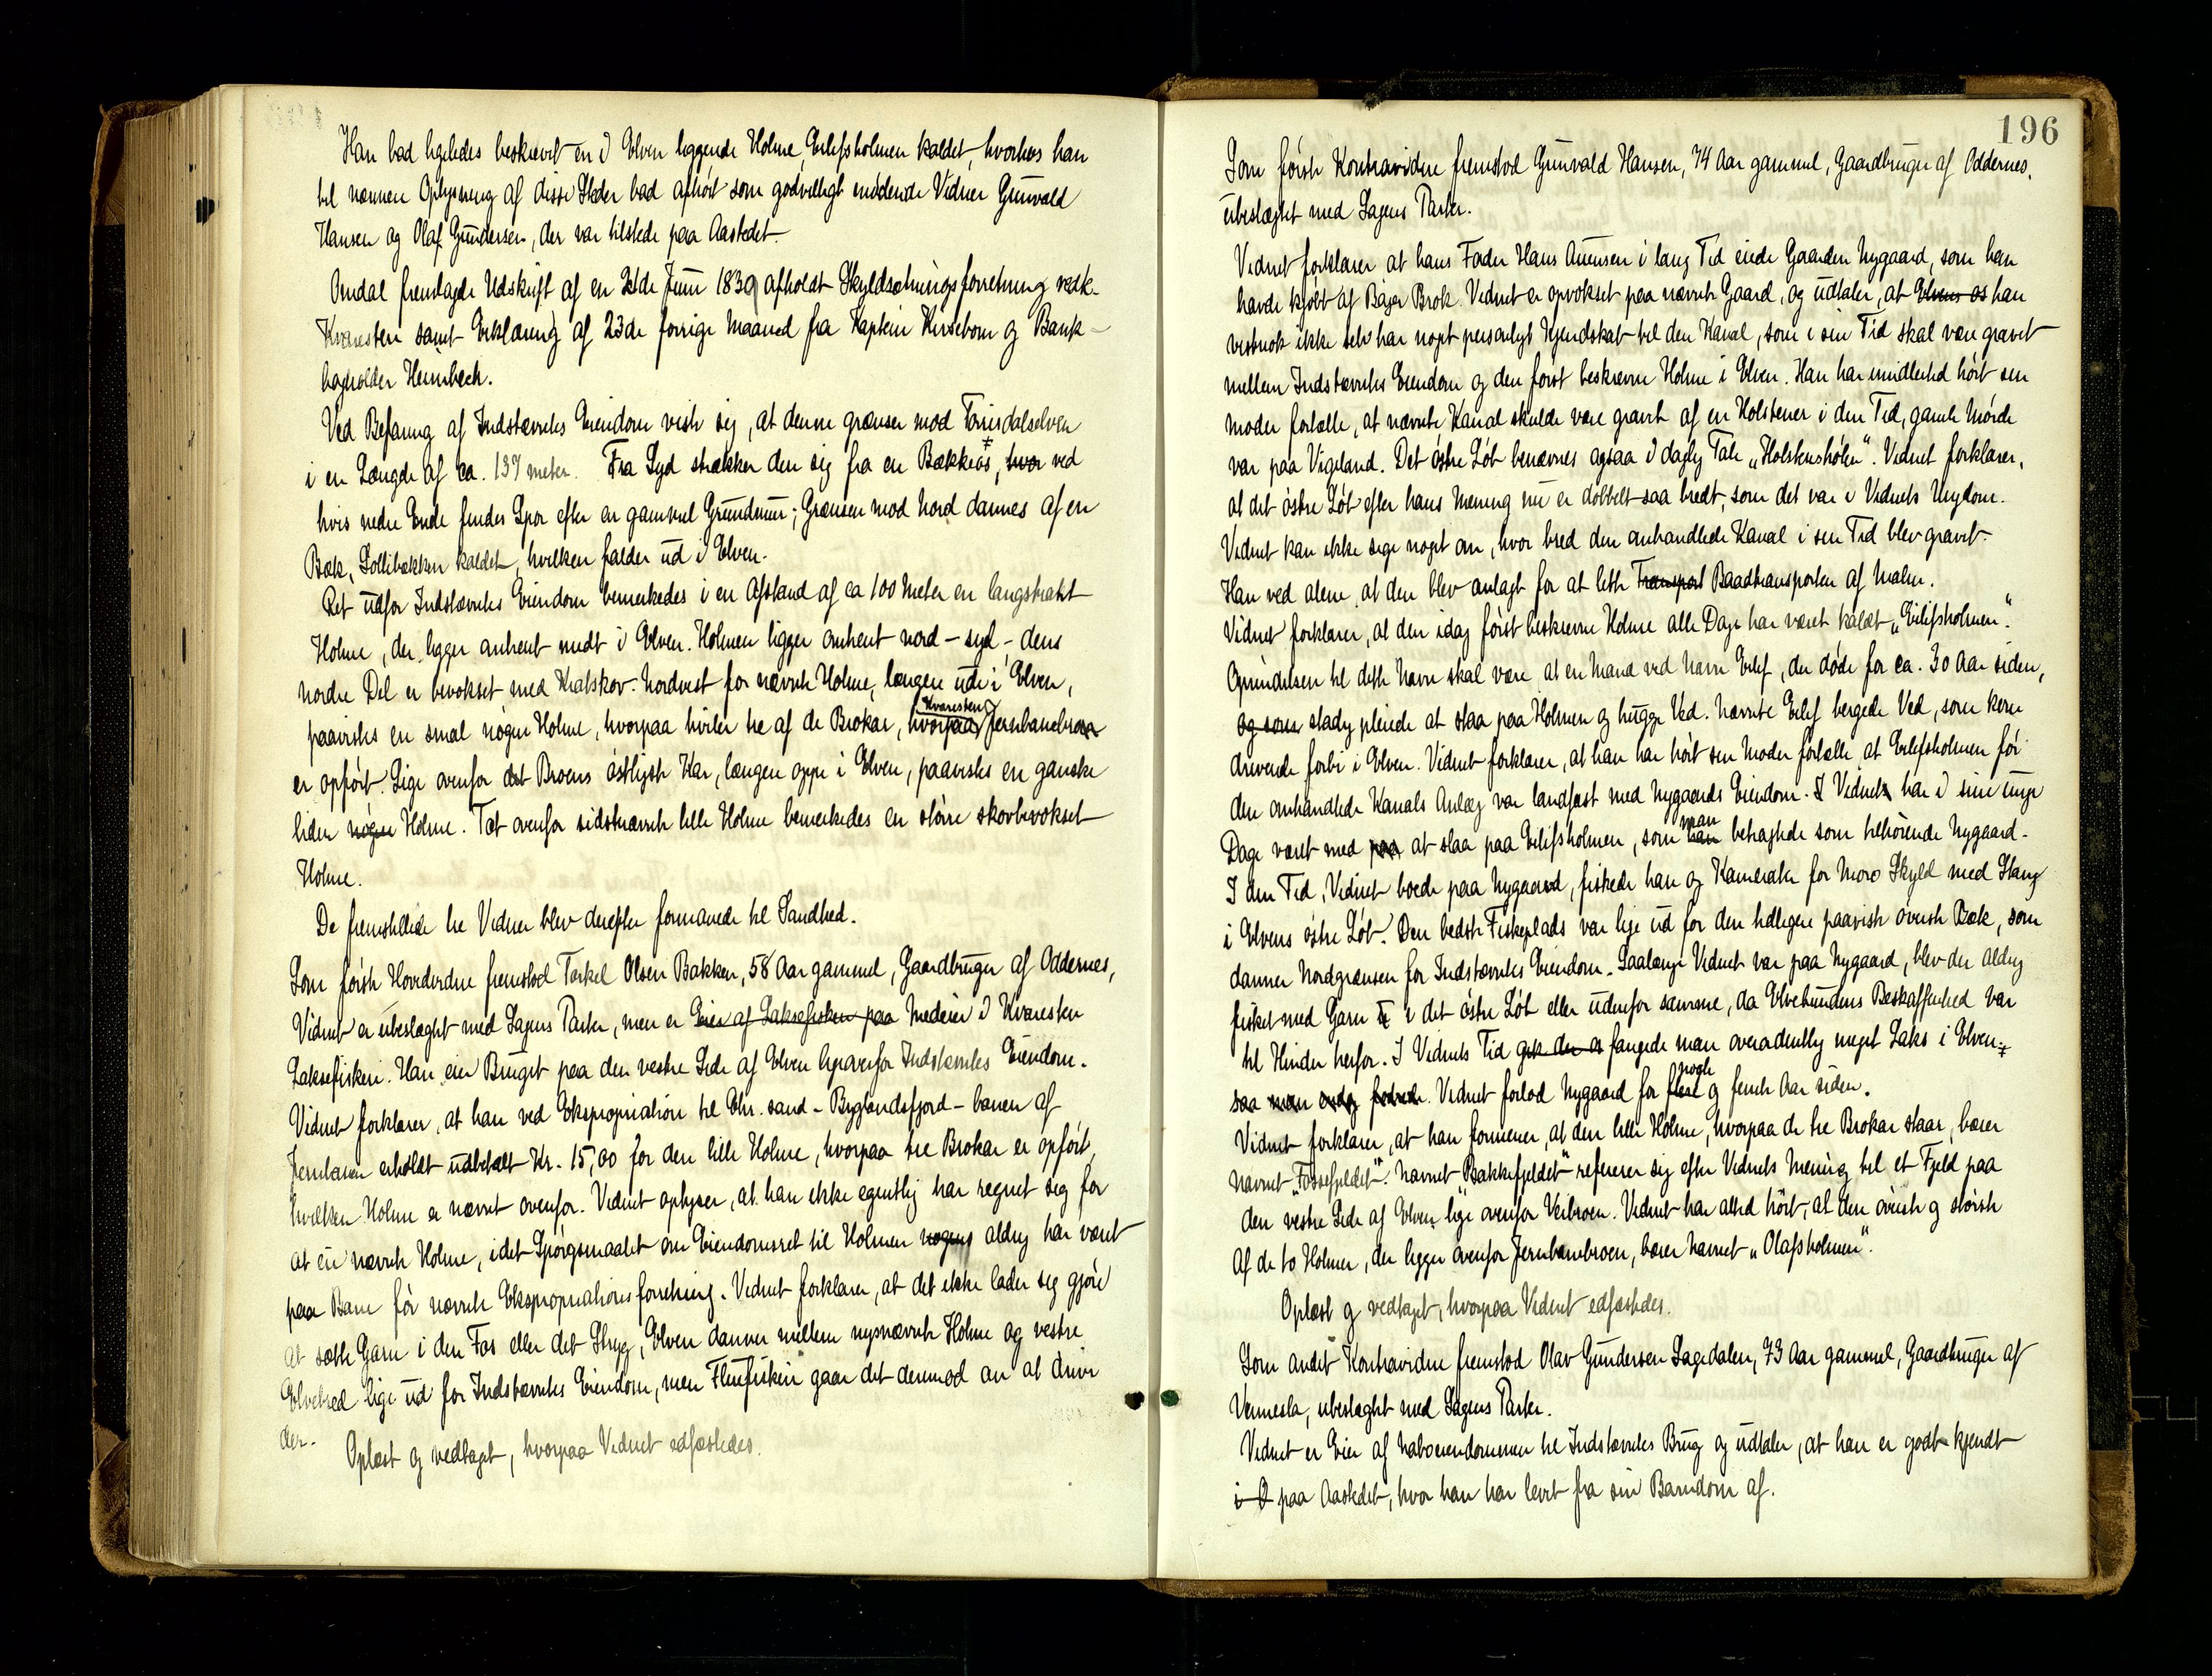 Han bad ligeledes beskrevet en i Elven liggende Holme, Eilifsholmen kaldet, hvorhos han
til nærmere Oplysning af disse Steder bad afhørt som godvilligt mødende Vidner Gunvald
Hansen og Olaf Gundersen, der var tilstede paa Aastedet.
Omdal fremlagde Udskrift af en 21de Juni 1839 afholdt Skyldsætningsforretning vedk.
Kvaresten samt Erklæring af 23de forrige Maaned fra Kaptein Kirsebom og Bank-
bogholder Heimbeck.
Ved Befaring af Indstævntes Eiendom viste sig, at denne grænser mod Torrisdalselven
i en Længde af ca. 137 meter. Fra Syd strækker den sig fra en Bækkeos, hvor ved
hvis nedre Ende findes Spor efter en gammel Grundmur; Grænsen mod Nord dannes af en
Bæk, Lollibækken kaldet, hvilken falder ud i Elven.
Ret udfor Indstævntes Eiendom bemerkedes i en Afstand af ca 100 Meter en langstrakt
Holme, der ligger omtrent midt i Elven. Holmen ligger omtrent nord - syd - dens
nordre Del er bevokset med Kratskov. Nordvest for nævnte Holme, længere ude i Elven,
paavistes en smal nøgen Holme, hvorpaa hviler tre af de Brokar, hvorpaa Kvaresten Jernbanebroen
er opført. Lige ovenfor det Broens østligste Kar, længere oppe i Elven, paavistes en ganske
liden nøgen Holme. Tæt ovenfor sidstnævnte lille Holme bemerkedes en større skovbevokset
Holme.
De fremstillede tre Vidner blev derefter formanede til Sandhed.
Som første Hovedvidne fremstod Torkel Olsen Bakken, 58 Aar gammel, Gaardbruger af Oddernes,
Vidnet er ubeslægtet med Sagens Parter, men er Eier af Laksefisken paa Medeier i Kvaresten
Laksefiskeri. Han eier Bruget paa den vestre Side af Elven ligeovenfor Indstævntes Eiendom.
Vidnet forklarer, at han ved Ekspropriation til Chr.sand - Byglandsfjord - banen af
Jernbanen erholdt udbetalt Kr. 15,00 for den lille Holme, hvorpaa tre Brokar er opført,
hvilken Holme er nævnt ovenfor. Vidnet oplyser, at han ikke egentlig har regnet sig for
at eie nævnte Holme, idet Spørgsmaalet om Eiendomsret til Holmen nogens aldrig har været
paa Bane før nævnte Ekspropriationsforretning. Vidnet forklarer, at det ikke lader sig gjøre
at sætte Garn i den Fos eller det Stryg, Elven danner mellem nysnævnte Holme og vestre
Elvebred lige ud for Indstævntes Eiendom, men Fluefiskeri gaar det derimod an at drive
der.
Oplæst og vedtaget, hvorpaa Vidnet edfæstedes.
196
Som første Kontravidne fremstod Gunvald Hansen, 74 Aar gammel, Gaardbruger af Oddernes,
ubeslægtet med Sagens Parter.
Vidnet forklarer at hans Fader Hans Auensen i lang Tid eiede Gaarden Nygaard, som han
havde kjøbt af Bager Brok. Vidnet er opvokset paa nævnte Gaard, og udtaler, at Elvens os han
vistnok ikke selv har noget personligt Kjendskab til den Kanal, som i sin Tid skal være gravet
mellem Indstævntes Eiendom og den først beskrevne Holme i Elven. Han har imidlertid hørt sin
Moder fortælle, at nævnte Kanal skulde være gravet af en Holstener i den Tid, gamle Mørde
var paa Vigeland. Det østre Løb benævnes ogsaa i daglig Tale "Holstenshølen". Vidnet forklarer,
at det østre Løb efter hans Mening nu er dobbelt saa bredt, som det var i Vidnets Ungdom.
Vidnet kan ikke sige noget om, hvor bred den omhandlede Kanal i sin Tid blev gravet.
Han ved alene, at den blev anlagt for at lette Transport Baadtransporten af Malm.
Vidnet forklarer, at den idag først beskrevne Holme alle Dage har været kaldt "Eilifsholmen".
Grundelsen til dette Navn skal være at en Mand ved Navn Eilif, der døde for ca. 30 Aar siden,
og som stadig pleiede at staa paa Holmen og hugge Ved. Nævnte Eilif bergede Ved, som kom
drivende forbi i Elven. Vidnet forklarer, at han har hørt sin Moder fortælle, at Eilifsholmen før
den omhandlede Kanals Anlæg var landfast med Nygaards Eiendom. I Vidnets har i sine unge
Dage været med paa at slaa paa Eilifsholmen, som han man betragtede som tilhørende Nygaard.
I den Tid, Vidnet boede paa Nygaard, fiskede han og Kamerater for Moro Skyld med Stang
i Elvens østre Løb. Den bedste Fiskeplads var lige ud for den tidligere paaviste øverste Bæk, som
danner Nordgrænsen for Indstævntes Eiendom. Saalænge Vidnet var paa Nygaard, blev der aldrig
fisket med Garn i det østre Løb eller udenfor samme, da Elvebundens Beskaffenhed var
til Hinder herfor. I Vidnets Tid gik der os fangede man overordentlig meget Laks i Elven,
saa man endog fodrede. Vidnet forlod Nygaard for flere nogle og femti Aar siden.
Vidnet forklarer, at han formener, at den lille Holme, hvorpaa de tre Brokar staar, bærer
Navnet "Fossefjeldet". Navnet "Bakkefjeldet" refererer sig efter Vidnets Mening til et Fjeld paa
den vestre Side af Elven lige ovenfor Veibroen. Vidnet har altid hørt, at den øverste og største
af de to Holmer, der ligger ovenfor Jernbanebroen, bærer Navnet "Olafsholmen".
Oplæst og vedtaget, hvorpaa Vidnet edfæstedes.
Som andet Kontravidne fremstod Olav Gundersen Lagedalen, 73 Aar gammel, Gaardbruger af
Vennesla, ubeslægtet med Sagens Parter.
Vidnet er Eier af Naboeiendommen til Indstævntes Brug og udtaler, at han er godt kjendt
i O paa Aastedet, hvor han har levet fra sin Barndom af.